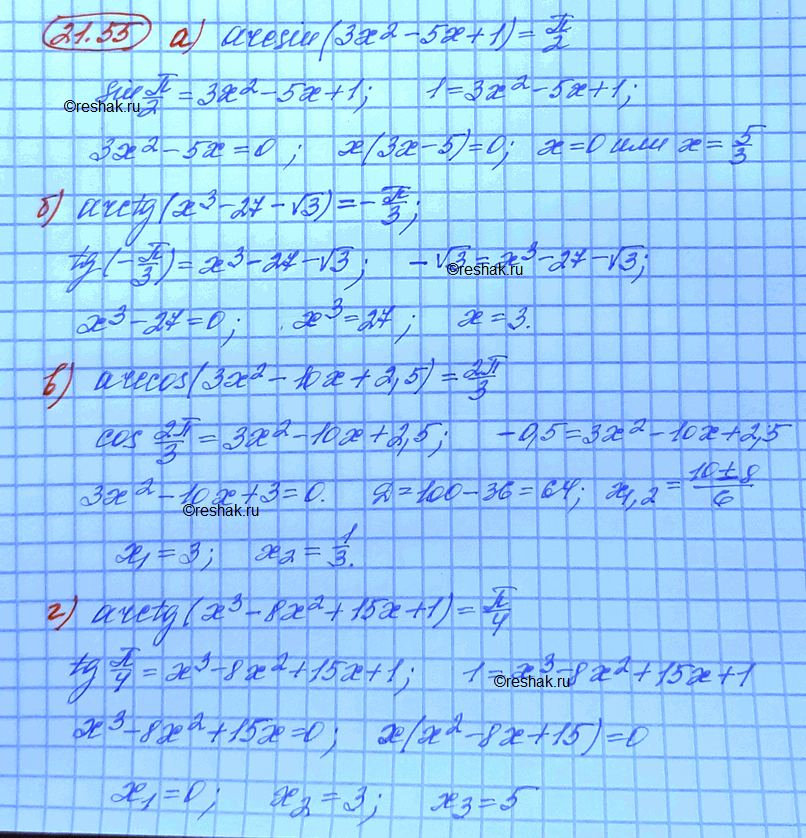 21.55 а) arcsin(3x² - 5x + 1) = π/2
sin π/2 = 3x² - 5x + 1; 1 = 3x² - 5x + 1;
©reshak.ru
3x² - 5x = 0; x(3x - 5) = 0; x = 0 или x = 5/3
б) arctg(x³ - 27 - √3) = -π/3;
tg(-π/3) = x³ - 27 - √3; -√3 = x³ - 27 - √3;
©reshak.ru
x³ - 27 = 0; x³ = 27; x = 3.
в) arccos(3x² - 10x + 2,5) = 2π/3
cos 2π/3 = 3x² - 10x + 2,5; -0,5 = 3x² - 10x + 2,5
3x² - 10x + 3 = 0. D = 100 - 36 = 64; x₁,₂ = (10 ± 8)/6
©reshak.ru
x₁ = 3; x₂ = 1/3.
г) arctg(x³ - 8x² + 15x + 1) = π/4
tg π/4 = x³ - 8x² + 15x + 1; 1 = x³ - 8x² + 15x + 1
©reshak.ru
x³ - 8x² + 15x = 0; x(x² - 8x + 15) = 0
x₁ = 0; x₂ = 3; x₃ = 5